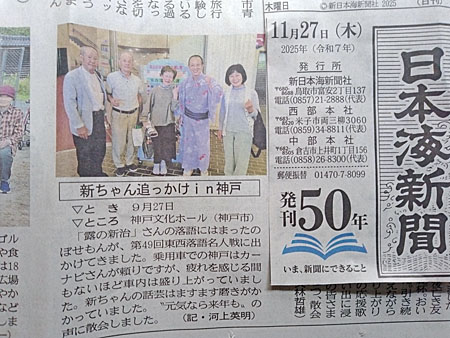 市青
旅行
木曜日
©新日本海新聞社 2025
(日刊)
11月27日(木)
2025年(令和7年)
発行所
新日本海新聞社
〒680-8688 鳥取市富安2丁目137
電話(0857)21-2888(代表)
西部本社
米子市両三柳3060
電話(0859)34-8811(代表)
中部本社
倉吉市上井町1丁目156
電話(0858)26-8300(代表)
郵便振替 01470-7-8099
発刊50年
いま、新聞にできること
日本海新聞
新ちゃん追っかけin神戸
▽とき 9月27日
▽ところ 神戸文化ホール(神戸市)
「露の新治」さんの落語にはまった
ぼせもんが、第49回東西落語名人戦に出
かけてきました。乗用車での神戸はカー
ナビさんが頼りですが、疲れを感じる間
もないほど車内は盛り上がっていまし
た。新ちゃんの話芸はますます磨きがか
かっていました。“元気なら来年も„の
声に散会しました。(記・河上英明)